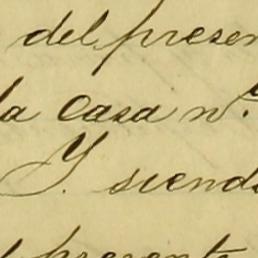 del presen
la casa n.º
Y. siendo
l presente